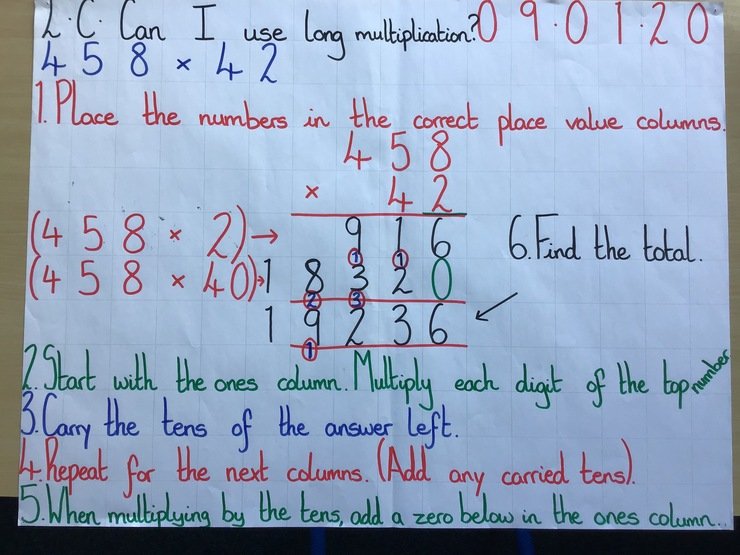 L.C. Can I use long multiplication? 09.01.20
458 × 42
1. Place the numbers in the correct place value columns.
458
× 42
(458 × 2)→ 916
1 1
6. Find the total.
(458 × 40)→ 18320
2 3
19236
1
2. Start with the ones column. Multiply each digit of the top number
3. Carry the tens of the answer left.
4. Repeat for the next columns. (Add any carried tens).
5. When multiplying by the tens, add a zero below in the ones column.